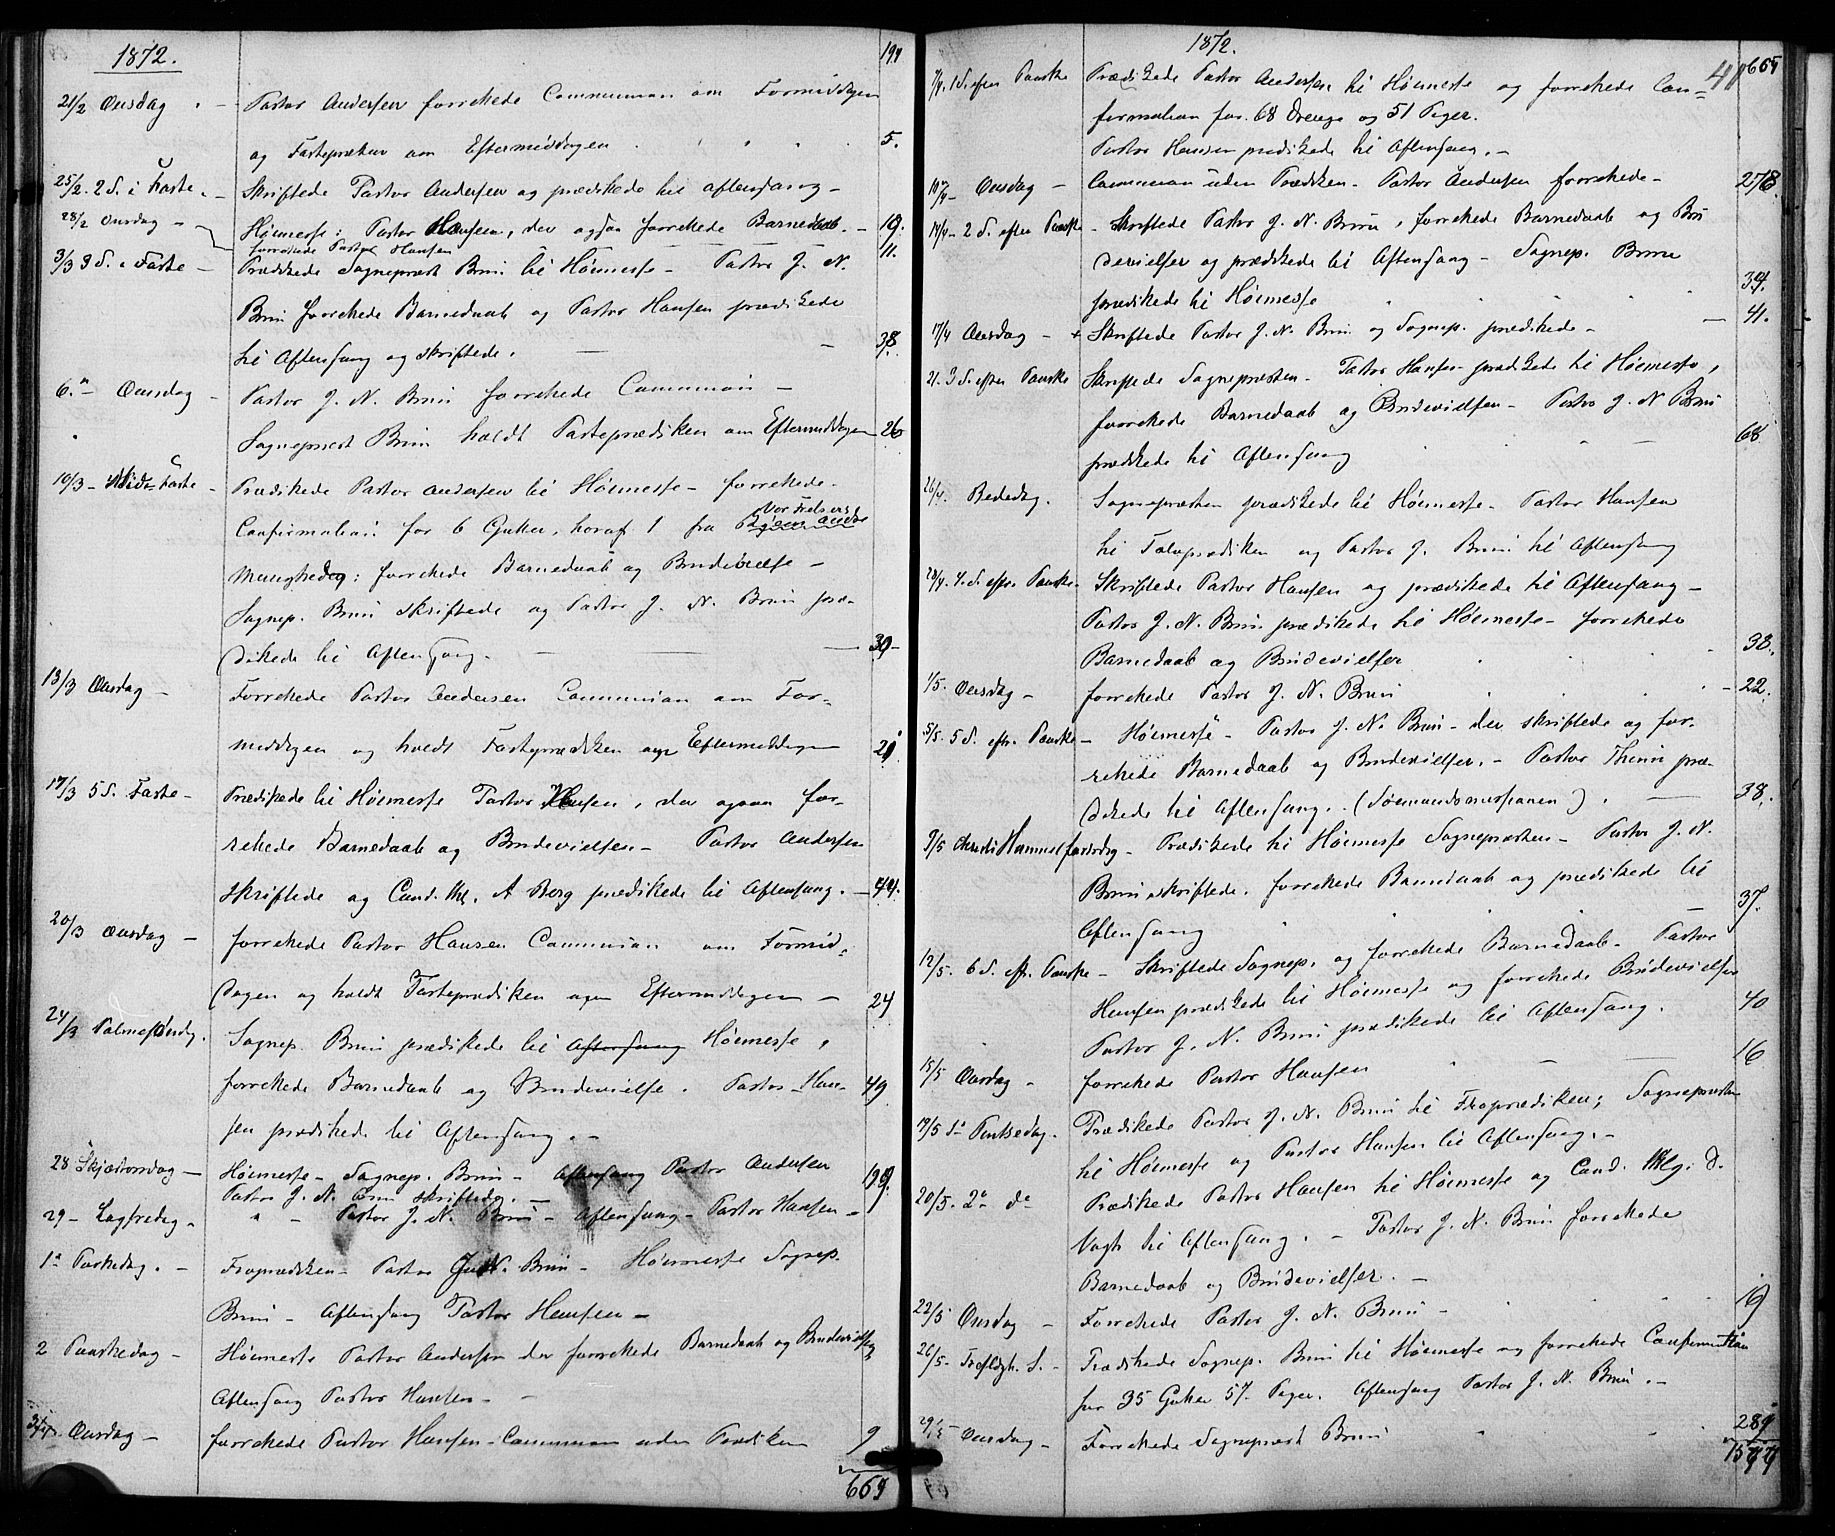 1872.
199
21/2 Onsdag - Pastor Andersen forrettede Communion om Formiddagen
og Fastepræken om Eftermiddagen 5.
25/2. 2 S. i Faste - Skriftede Pastor Andersen og prædikede til aftensang -
28/2 Onsdag - Høimesse: Pastor Hansen, der ogsaa forrettede Barnedaab. - 19.
forrettede Pastor Hansen 11.
3/3 3 S. i Faste - Prædikede Sognepræst Bruun til Høimesse - Pastor J. N.
Bruun forrettede Barnedaab og Pastor Hansen prædikede
til Aftensang og skriftede. - 38.
6. - Onsdag - Pastor J. N. Bruun forrettede Communion -
Sognepræst Bruun holdt Fasteprædiken om Eftermiddagen 26
10/3 - Mids Faste - Prædikede Pastor Andersen til Høimesse - forrettede
Confirmation for 6 Gutter, hvoraf 1 fra Vor Frelsers
Menighed: forrettede Barnedaab og Brudevielse -
Sognep. Bruun skriftede og Pastor J. N. Bruun præ-
dikede til Aftensang. - 39 -
13/3 Onsdag - Forrettede Pastor Andersen Communion om For-
middagen og holdt Fasteprædiken om Eftermiddagen 21
17/3 5 S. Faste - Prædikede til Høimesse Pastor Hansen, der ogsaa for-
rettede Barnedaab og Brudevielsen - Pastor Andersen
skriftede og Cand. thl. A Berg prædikede til Aftensang. - 44.
20/3 Onsdag - forrettede Pastor Hansen Communion om Formid-
dagen og holdt Fasteprædiken om Eftermiddagen - 24
24/3 Palmesøndg. Sognep. Bruun prædikede til Aftensang Høimesse,
forrettede Barnedaab og Brudevielse. Pastor Han- 49
sen prædikede til Aftensang. -
28 Skjærtorsdag - Høimesse - Sognep. Bruun - Aftensang Pastor Andersen 199.
Pastor J. N. Bruun skriftede. -
29 - Langfredag - " - Pastor J. N. Bruun - Aftensang - Pastor Hansen -
1ste Paaskedag. - Froprædiken - Pastor J. N. Bruun - Høimesse Sognep.
Bruun - Aftensang Pastor Hansen -
2 Paaskedag - Høimesse Pastor Andersen der forrettede Barnedaab og Brudevielse
Aftensang Pastor Hansen -
3/4 Onsdag - forrettede Pastor Hansen - Communion uden Prædiken 9
669
1872.
41 669
7/4. 1 S. efter Paaske Prædikede Pastor Andersen til Høimesse og forrettede Con-
firmation for 68 Drenge og 51 Piger.
Pastor Hansen prædikede til Aftensang. -
10/4 - Onsdag - Communion uden Prædiken - Pastor Andersen forrettede - 278.
14/4 - 2 S. efter Paaske - Skriftede Pastor J. N. Bruun, forrettede Barnedaab og Bru
devielser og prædikede til Aftensang - Sognep. Bruun
prædikede til Høimesse 34.
17/4 Onsdag - Skriftede Pastor J. N. Bruun og Sognep. prædikede - 41.
21. 3 S. efter Paaske Skriftede Sognepræsten - Pastor Hansen prædikede til Høimesse,
forrettede Barnedaab og Brudevielsen - Pastor J. N Bruun
prædikede til Aftensang 68
26/4. Bededag. Sognepræsten prædikede til Høimesse - Pastor Hansen
til Tolvprædiken og Pastor J. Bruun til Aftensang
28/4. 4. S. efter Paaske - Skriftede Pastor Hansen og prædikede til Aftensang -
Pastor J. N. Bruun prædikede til Høimesse - forrettede
Barnedaab og Brudevielser 38.
1/5. Onsdag - forrettede Pastor J. N. Bruun - 22.
5/5. 5 S. efter Paaske - Høimesse - Pastor J. N. Bruun - der skriftede og for-
rettede Barnedaab og Brudevielser. - Pastor præ-
dikede til Aftensang. (Sømandsmissionen). 38.
9/5 Christi Himmelfartsdag - Prædikede til Høimesse Sognepræsten - Pastor J. N.
Bruun skriftede, forrettede Barnedaab og prædikede til
Aftensang 37.
12/5. 6 S. eft. Paaske - Skriftede Sognep. og forrettede Barnedaab - Pastor
Hansen prædikede til Høimesse og forrettede Brudevielser
Pastor J. N. Bruun prædikede til Aftensang. 40
15/5 Onsdag - forrettede Pastor Hansen 16
19/5 1ste Pintsedag. Prædikede Pastor J. N. Bruun til Froprædiken; Sognepræsten
til Høimesse og Pastor Hansen til Aftensang. -
20/5. 2den do Prædikede Pastor Hansen til Høimesse og Cand. thlg. D.
Vogt til Aftensang. - Pastor J. N. Bruun forrettede
Barnedaab og Brudevielser. -
22/5 Onsdag - Forrettede Pastor J. N. Bruun - 19
26/5 - Trefldgh. S. - Prædikede Sognep. Bruun til Høimesse og forrettede Confirmation
for 35 Gutter 57 Piger. Aftensang Pastor J. N. Bruun. -
29/5 Onsdag - Forrettede Sognepræst Bruun 289
1577